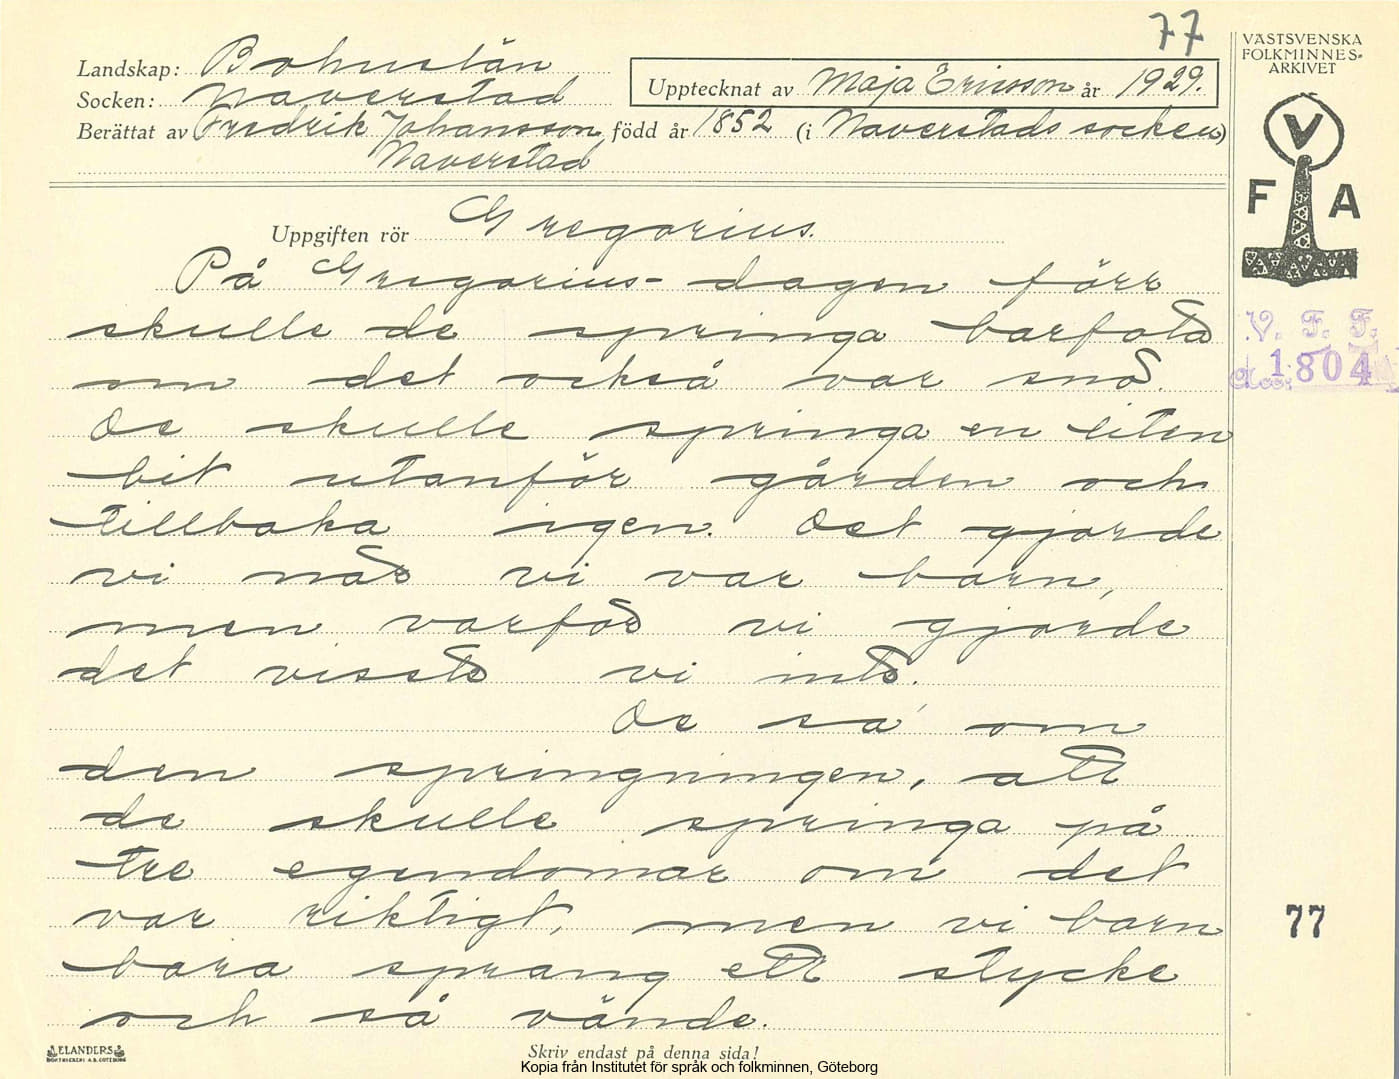 77
Landskap: Bohuslän
Socken: Naverstad
Upptecknat av Maja Ericsson år 1929.
Berättat av Fredrik Johansson, född år 1852 (i Naverstads socken)
Naverstad
VÄSTSVENSKA
FOLKMINNES-
ARKIVET
V
F A
V. F. F.
Acc: 1804
Uppgiften rör Gregorius.
På Gregorius-dagen förr
skulle de springa barfota
om det också var snö.
De skulle springa en liten
bit utanför gården och
tillbaka igen. Det gjorde
vi når vi var barn,
men varför vi gjorde
det visste vi inte.
De sa' om
den springningen, att
de skulle springa på
tre egendomar om det
var riktigt, men vi barn
bara sprang ett stycke
och så vände.
77
ELANDERS
BOKTRYCKERI A.B. GÖTEBORG
Skriv endast på denna sida!
Kopia från Institutet för språk och folkminnen, Göteborg